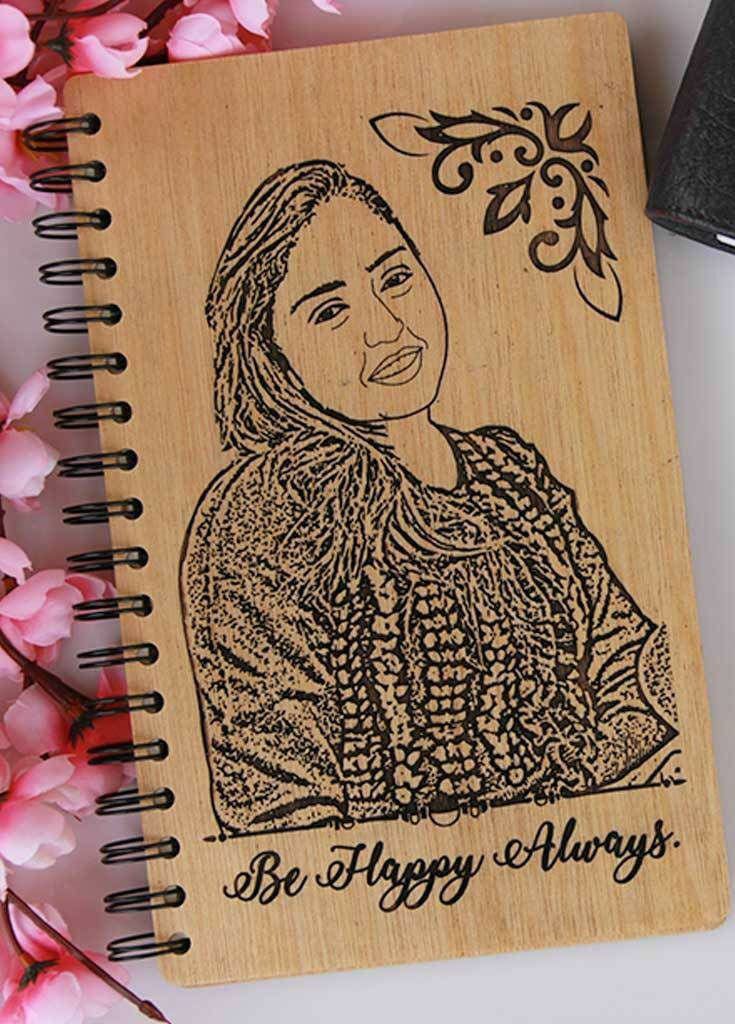 Be Happy Always.